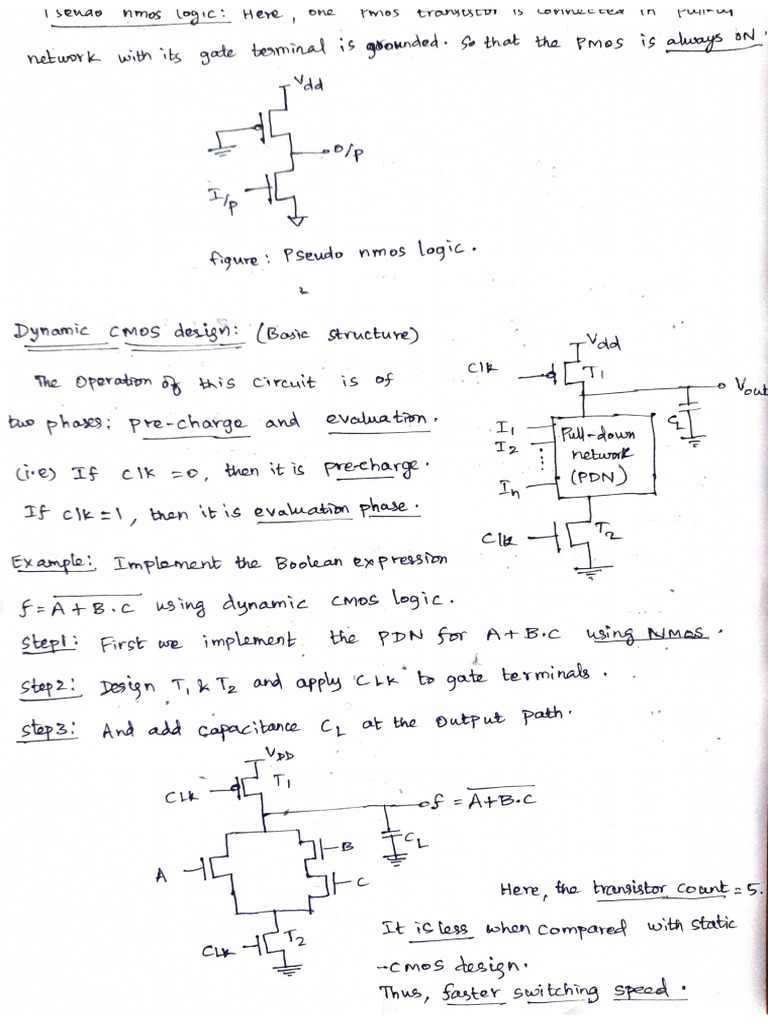 Psendo nmos logic: Here, one Pmos transistor is connected in Pull-up
network with its gate terminal is grounded. So that the PMOS is always ON.
Vdd
O/P
I/p
figure: Pseudo nmos logic.
Dynamic CMOS design: (Basic structure)
The Operation of this circuit is of
two phases; pre-charge and evaluation.
(i.e) If clk = 0, then it is precharge.
If clk = 1, then it is evaluation phase.
Vdd
Clk
T1
Vout
CL
I1
I2
In
Pull-down
network
(PDN)
Clk
T2
Example: Implement the Boolean expression
f = \overline{A + B . C} using dynamic CMOS logic.
Step1: First we implement the PDN for A+B.C using NMOS.
Step2: Design T1 & T2 and apply 'CLK' to gate terminals.
Step3: And add capacitance CL at the output path.
VDD
CLK
T1
f = \overline{A+B.C}
CL
A
B
C
CLK
T2
Here, the transistor count = 5.
It is less when compared with static
-CMOS design.
Thus, faster switching speed.